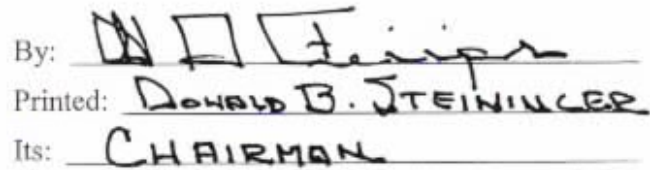 By:
Printed: DONALD B. STEININGER
Its: CHAIRMAN